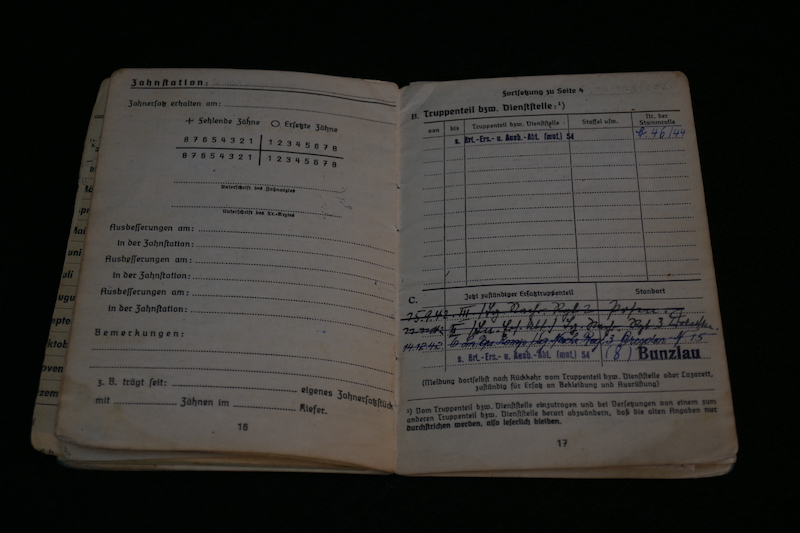 Zahnstation:
Zahnersatz erhalten am:
+ Fehlende Zähne O Ersetzte Zähne
8 7 6 5 4 3 2 1 1 2 3 4 5 6 7 8
8 7 6 5 4 3 2 1 1 2 3 4 5 6 7 8
Unterschrift des
Unterschrift des
Ausbesserungen am:
in der Zahnstation:
Ausbesserungen am:
in der Zahnstation:
Ausbesserungen am:
in der Zahnstation:
Bemerkungen:
z. B. trägt seit: eigenes Zahnersatzstück
mit Zähnen im Kiefer.
16
Fortsetzung zu Seite 4
B. Truppenteil bzw. Dienststelle:¹)
von bis Truppenteil bzw. Dienststelle Staffel usw. Nr. der Stammrolle
s. Art.-Ers.- u. Ausb.-Abt. (mot) 54 46/44
C. Jetzt zuständiger Ersatztruppenteil Standort
25.9.42 III Posen
Rgt 3
14.12.42 Dresden
s. Art.-Ers.- u. Ausb.-Abt. (mot) 54 (8) Bunzlau
(Meldung dortselbst nach Rückkehr vom Truppenteil bzw. Dienststelle oder Lazarett,
zuständig für Ersatz an Bekleidung und Ausrüstung)
¹) Vom Truppenteil bzw. Dienststelle einzutragen und bei Versetzungen von einem zum
anderen Truppenteil bzw. Dienststelle derart abzuändern, daß die alten Angaben nur
durchstrichen werden, also leserlich bleiben.
17